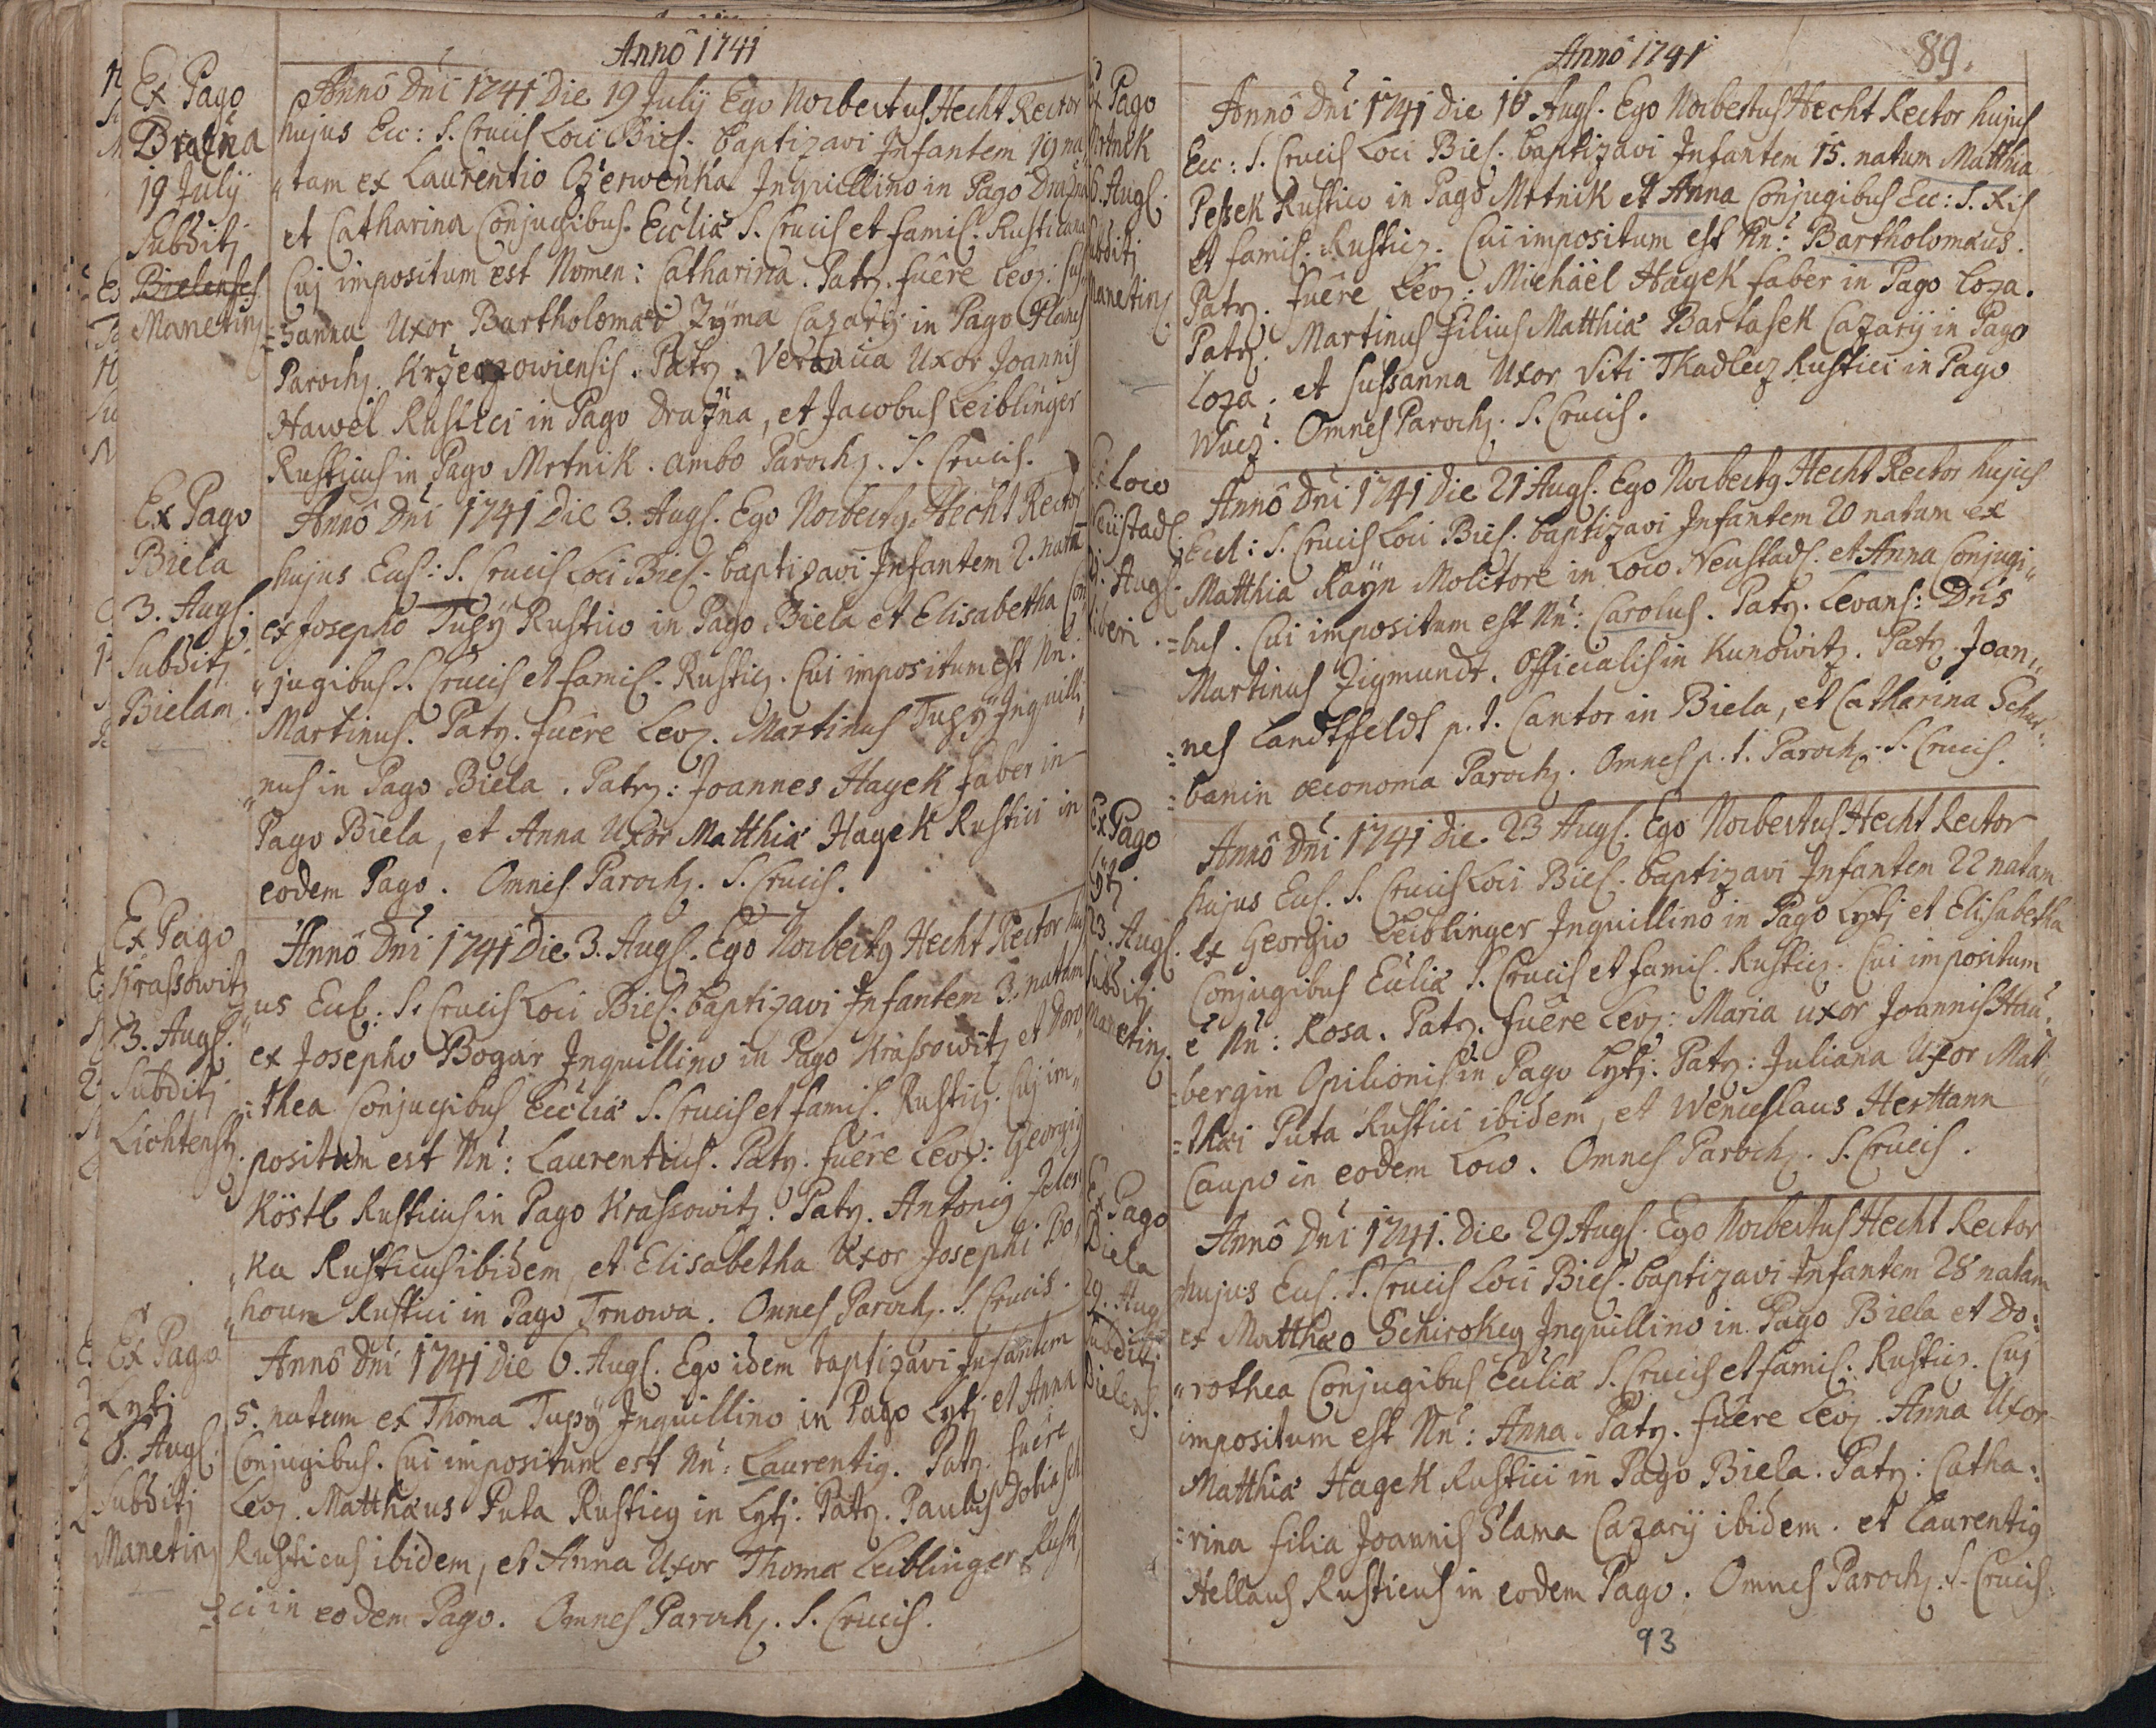 Annô 1741
Ex Pago
Dražna
19 Julÿ
Subditj
Bielenses
Manetinz
Annô Dni 1741 Die 19 Julÿ Ego Norbertus Hecht Rector
hujus Ecc: S. Crucis Loci Biel. baptizavi Infantem 19 na
tam ex Laurentio Czerwenka Inquillino in Pago Dražna
et Catharina Conjugibus. Ecclïæ S. Crucis et famil. Rusticana
Cuj impositum est Nomen: Catharina. Patr. fuêre Lev: Su
=sanna Uxor Bartholomæi Zÿma Cazarÿ in Pago Planes
Paroch. Patr. Veronica Uxor Joannis
Hawel Rustici in Pago Dražna, et Jacobus Leiblinger
Rusticus in Pago Mrtnik. ambo Paroch. S. Crucis.
Ex Pago
Biela
3. Augs.
Subditj
Bielam
Annô Dni 1741 Die 3. Augs. Ego Norbertg Hecht Rector
hujus Eccl: S. Crucis Loci Biel. baptizavi Infantem 2. natū
ex Josepho Tupÿ Rustico in Pago Biela et Elisabetha Con
jugibus S. Crucis et famil. Rusticz. Cui impositum est Nn:
Martinus. Patr. fuêre Lev. Martinus Tupÿ Inquilli
nus in Pago Biela. Patr: Joannes Hayek faber in
Pago Biela, et Anna Uxor Matthiæ Hayek Rustici in
eodem Pago. Omnes Paroch. S. Crucis.
Ex Pago
Krassowitz
3. Augs.
Subditj
Lichtenst.
Annô Dni 1741 Die 3. Augs. Ego Norbertg Hecht Rector huj
us Eccl: S. Crucis Loci Biel. baptizavi Infantem 3. natum
ex Josepho Bogar Inquillino in Pago Krassowitz et Doro
=thea Conjugibus Ecclïæ S. Crucis et famil. Rusticz. Cuj im
positum est Nn: Laurentius. Patr. fuêre Lev: Georgig
Köstl Rusticus in Pago Krassowitz. Patr. Antonig Jeles
ka Rusticus ibidem, et Elisabetha Uxor Josephi Bo
houn Rustici in Pago Trnowa. Omnes Paroch. S. Crucis.
Ex Pago
Lytj
6. Augs.
Subditj
Manetinz
Annô Dni 1741 Die 6. Augs. Ego idem baptizavi Infantem
5. natum ex Thoma Tupÿ Inquillino in Pago Lytj et Anna
Conjugibus. Cui impositum est Nn: Laurentig. Patr. fuêre
Lev. Matthæus Puta Rusticg in Lytj. Patr. Paulus Dobiasch
Rusticus ibidem, et Anna Uxor Thomæ Leiblinger Rusti
=ci in eodem Pago. Omnes Paroch. S. Crucis.
Anno 1741
89.
Ex Pago
Mrtnik
6. Augs.
Subditj
Manetinz
Annô Dni 1741 Die 16 Augs. Ego Norbertus Hecht Rector hujus
Ecc: S. Crucis Loci Biel. baptizavi Infantem 15. natum Matthia
Pessek Rustico in Pago Mrtnik et Anna Conjugibus Ecc: S. Xis
et famil. Rusticz. Cui impositum est Nn: Bartholomæus.
Patr. fuêre Lev: Michaël Hayek faber in Pago Loza.
Patr. Martinus Filius Matthiæ Bartasek Cazarÿ in Pago
Loza. et Sussanna Uxor Viti Tkadlecz Rustici in Pago
Wucz. Omnes Paroch. S. Crucis.
Ex Loco
Neustadl.
Augs.
liberi.
Annô Dni 1741 Die 21 Augs. Ego Norbertg Hecht Rector hujus
Eccl: S. Crucis Loci Biel. baptizavi Infantem 20 natum ex
Matthia Raÿn Molitore in Loco Neustadl. et Anna Conjugi
=bus. Cui impositum est Nn: Carolus. Patr. Levans: Dns
Martinus Zigmundt. Officialis in Kunowitz. Patr. Joan
=nes Landtsfeldt p. t. Cantor in Biela, et Catharina Schu
=banin œconoma Paroch. Omnes p. t. Paroch. S. Crucis.
Ex Pago
Lytj.
23. Augs.
Subditj
Manetinz.
Annô Dni 1741 Die. 23 Augs. Ego Norbertus Hecht Rector
hujus Eccl. S. Crucis Loci Biel. baptizavi Infantem 22 natam
ex Georgio Leiblinger Inquillino in Pago Lytj et Elisabetha
Conjugibus Ecclïæ S. Crucis et famil. Rusticz. Cui impositum
ē Nn: Rosa. Patr. fuêre Lev: Maria uxor Joannis Hau
=bergin Opilionis in Pago Lytj: Patr: Juliana Uxor Mat
=thæi Puta Rustici ibidem, et Wenceslaus Herttann
Caupo in eodem Loco. Omnes Paroch. S. Crucis.
Ex Pago
Biela
29. Aug
Subditj
Bielens.
Annô Dni 1741. Die 29 Augs. Ego Norbertus Hecht Rector
hujus Eccl. S. Crucis Loci Biel. baptizavi Infantem 28 natam
ex Matthæo Schirokey Inquillino in Pago Biela et Do:
rothea Conjugibus Ecclïæ S. Crucis et famil: Rusticz. Cuj
impositum est Nn: Anna. Patr. fuêre Lev. Anna Uxor
Matthiæ Hagek Rustici in Pago Biela. Patr: Catha:
=rina filia Joannis Slama Cazarÿ ibidem. et Laurentig
Hellaus Rusticus in eodem Pago. Omnes Paroch. S. Crucis.
93